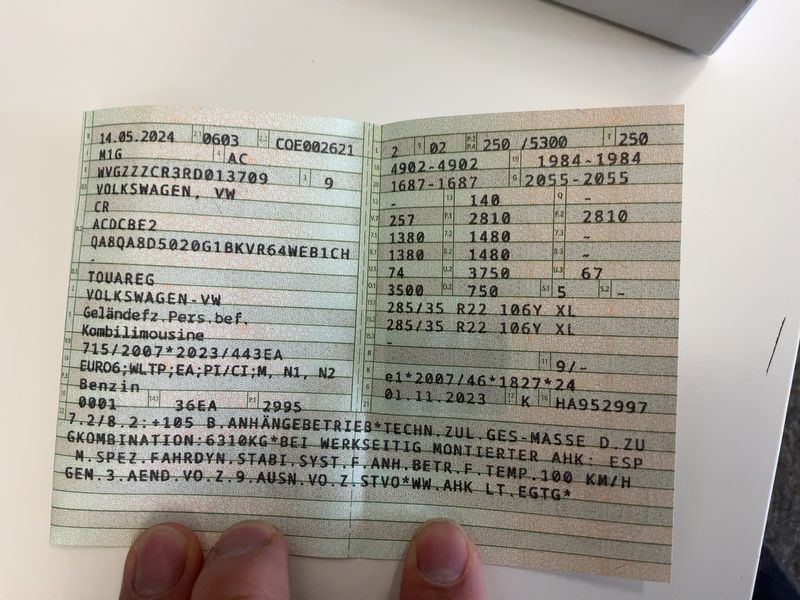 14.05.2024 0603 COE002621
M1G AC
WVGZZZCR3RD013709 9
VOLKSWAGEN, VW
CR
ACDCBE2
QA8QA8D5020G1BKVR64WEB1CH
-
TOUAREG
VOLKSWAGEN-VW
Geländefz.Pers.bef.
Kombilimousine
715/2007*2023/443EA
EURO6;WLTP;EA;PI/CI;M, N1, N2
Benzin
0001 36EA 2995
2 02 250 /5300 250
4902-4902 1984-1984
1687-1687 2055-2055
- 140 -
257 2810 2810
1380 1480 -
1380 1480 -
74 3750 67
3500 750 5 -
285/35 R22 106Y XL
285/35 R22 106Y XL
-
9/-
e1*2007/46*1827*24
01.11.2023 K HA952997
7.2/8.2:+105 B.ANHÄNGEBETRIEB*TECHN.ZUL.GES-MASSE D.ZU
GKOMBINATION:6310KG*BEI WERKSEITIG MONTIERTER AHK: ESP
M.SPEZ.FAHRDYN.STABI.SYST.F.ANH.BETR.F.TEMP.100 KM/H
GEM.3.AEND.VO.Z.9.AUSN.VO.Z.STVO*WW.AHK LT.EGTG*